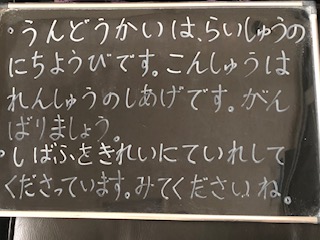 ・うんどうかいは、らいしゅうの
にちようびです。こんしゅうは
れんしゅうのしあげです。がん
ばりましょう。
・しばふをきれいにていれして
くださっています。みてくださいね。